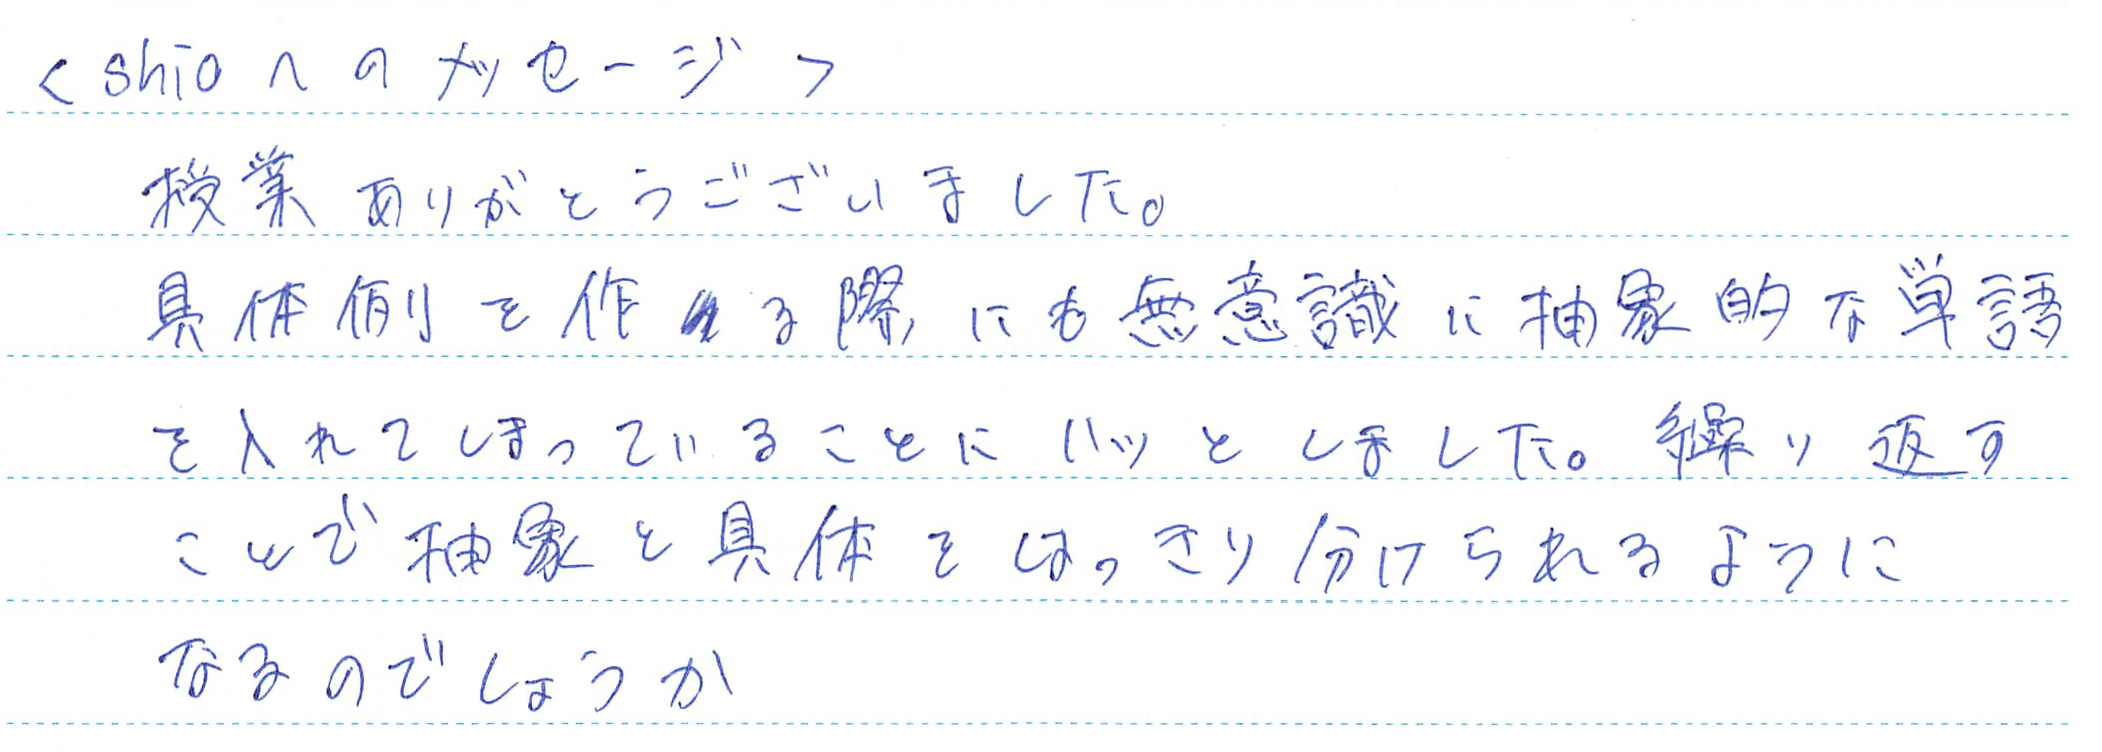 <shioへのメッセージ>
授業ありがとうございました。
具体例を作る際にも無意識に抽象的な単語
を入れてしまっていることにハッとしました。繰り返す
ことで抽象と具体をはっきり分けられるように
なるのでしょうか